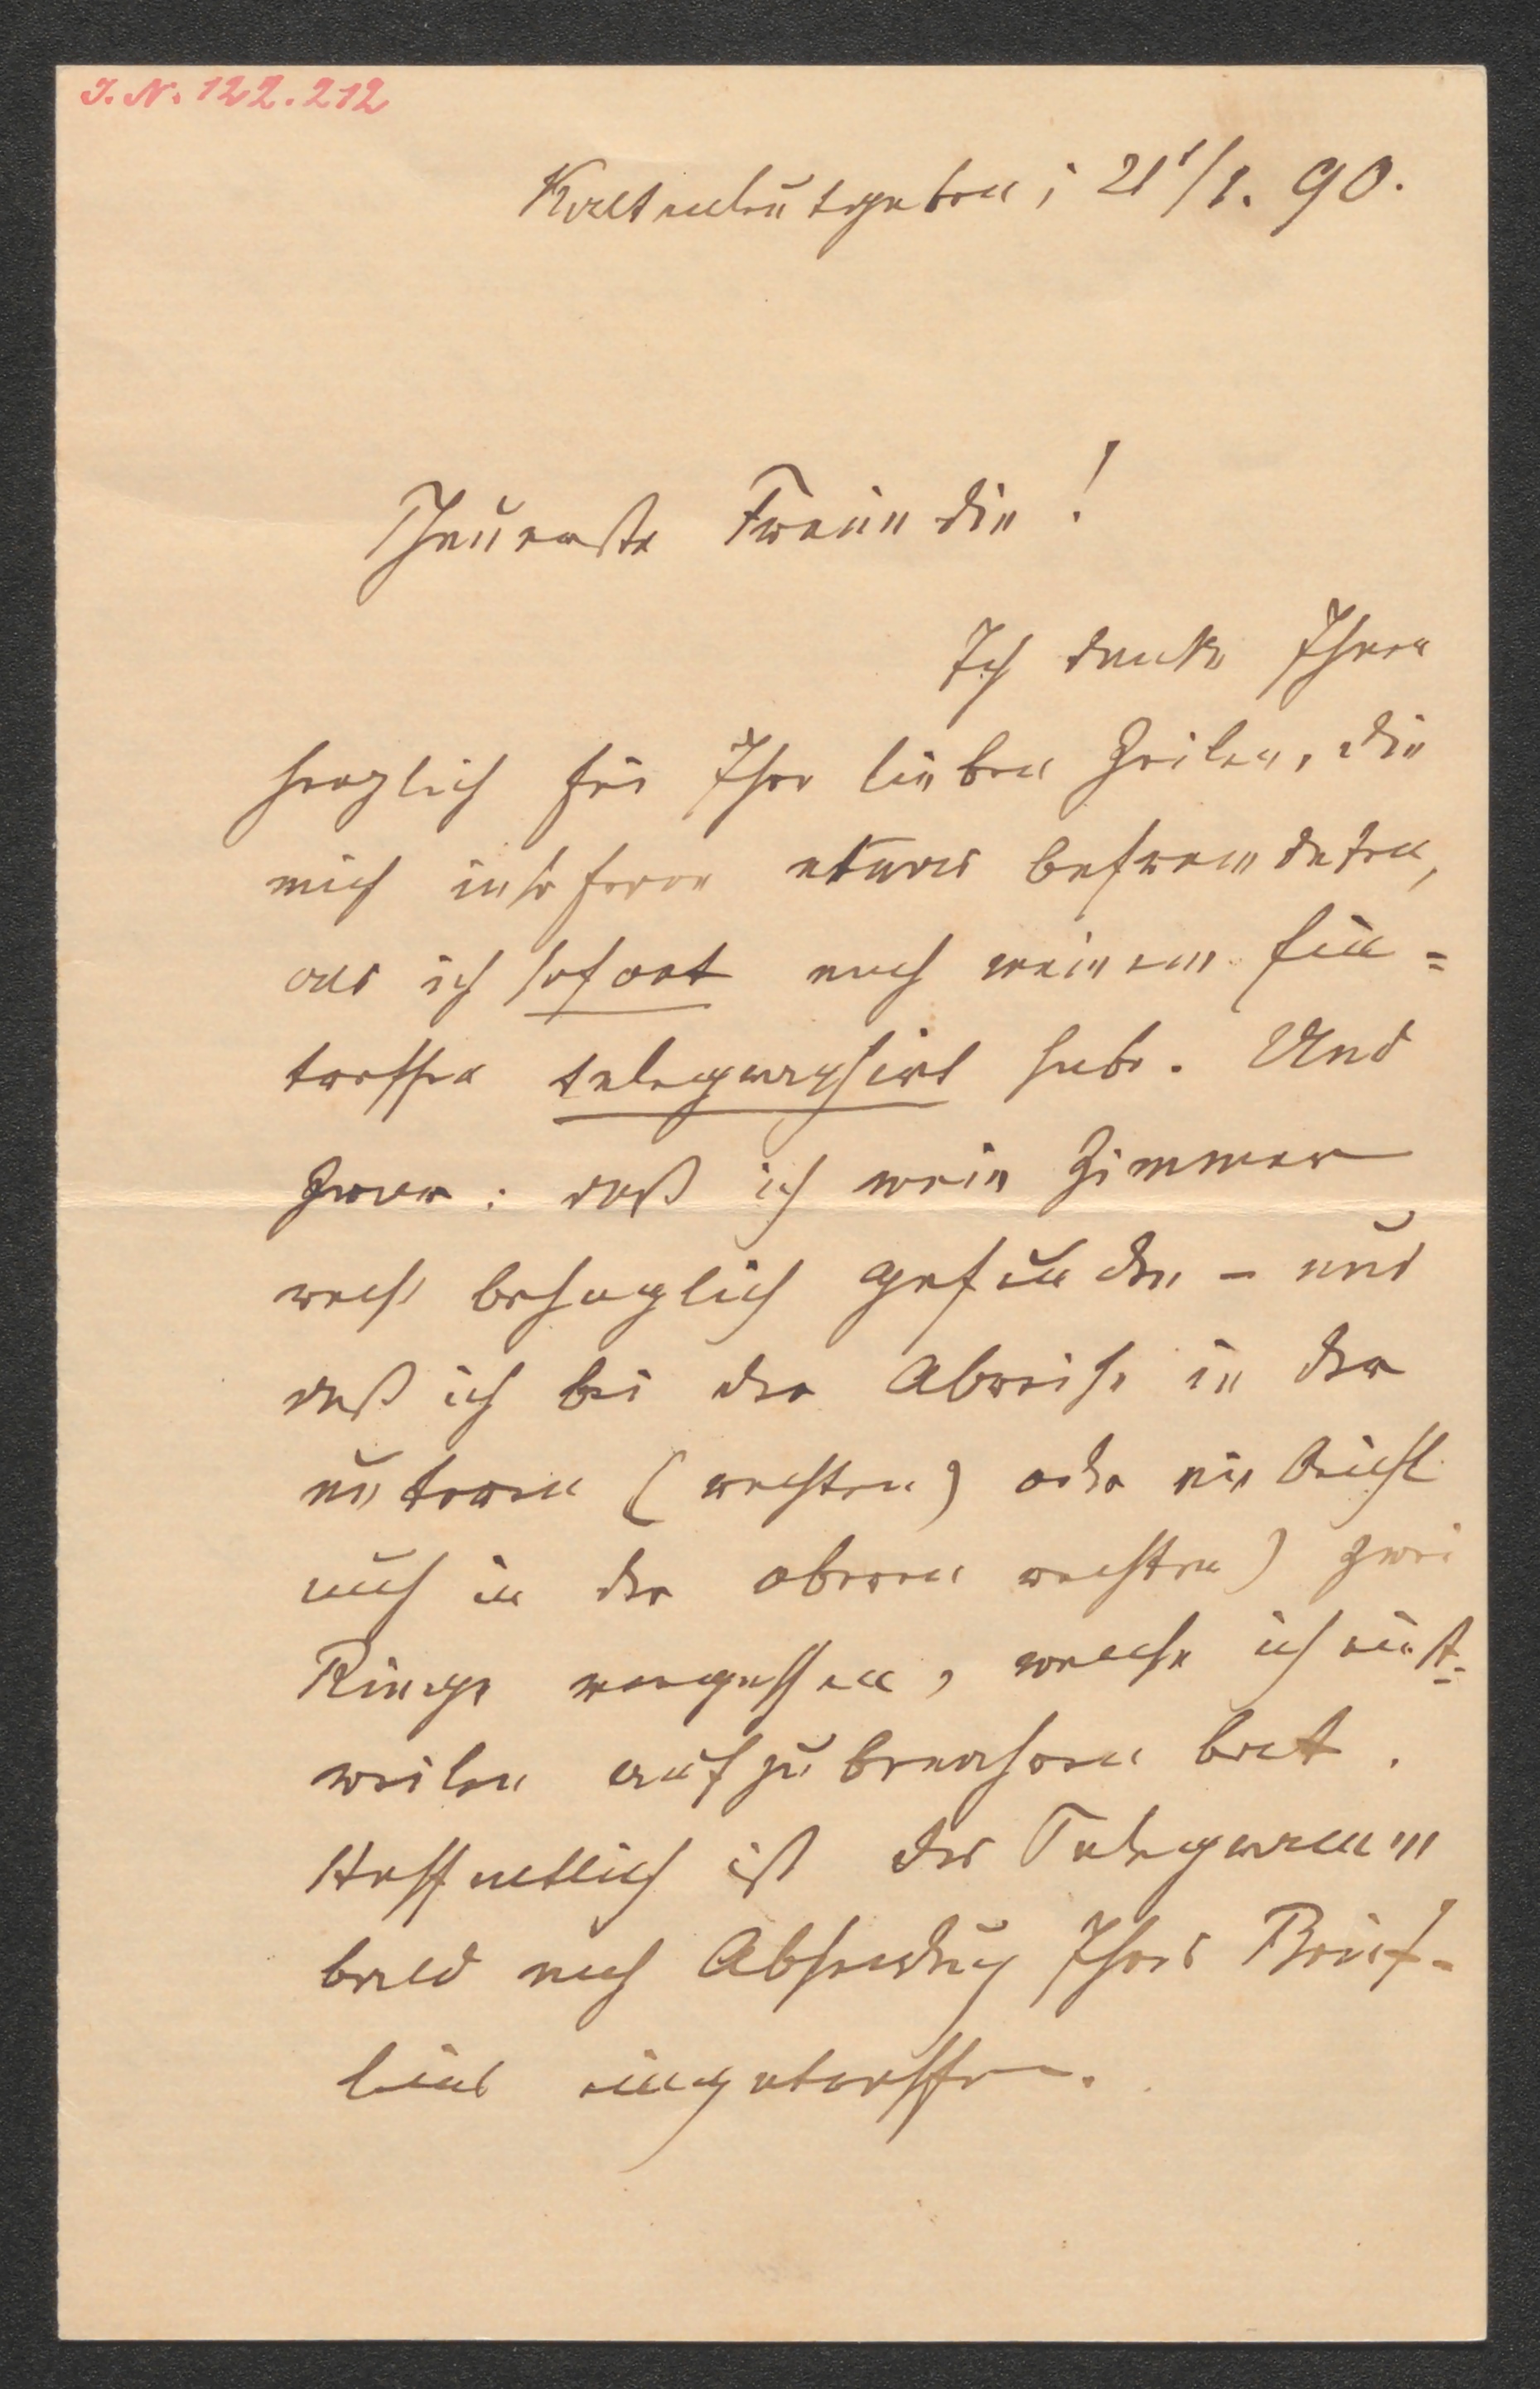 I. N. 122.212
Kaltenleutgeben, 21/1. 90.
Theuerste Freundin!
Ich danke Ihnen
herzlich für Ihre lieben Zeilen, die
mich insofern etwas befremdeten,
als ich sofort nach meinem Ein=
treffen telegraphirt habe. Und
zwar: daß ich mein Zimmer
recht behaglich gefunden – und
daß ich bei der Abreise in der
unteren (rechten) oder vielleicht
auch in der oberen rechten) zwei
Ringe vergessen, welche ich einst=
weilen aufzubewahren bat.
Hoffentlich ist das Telegramm
bald nach Absendung Ihres Brief-
leins eingetroffen.